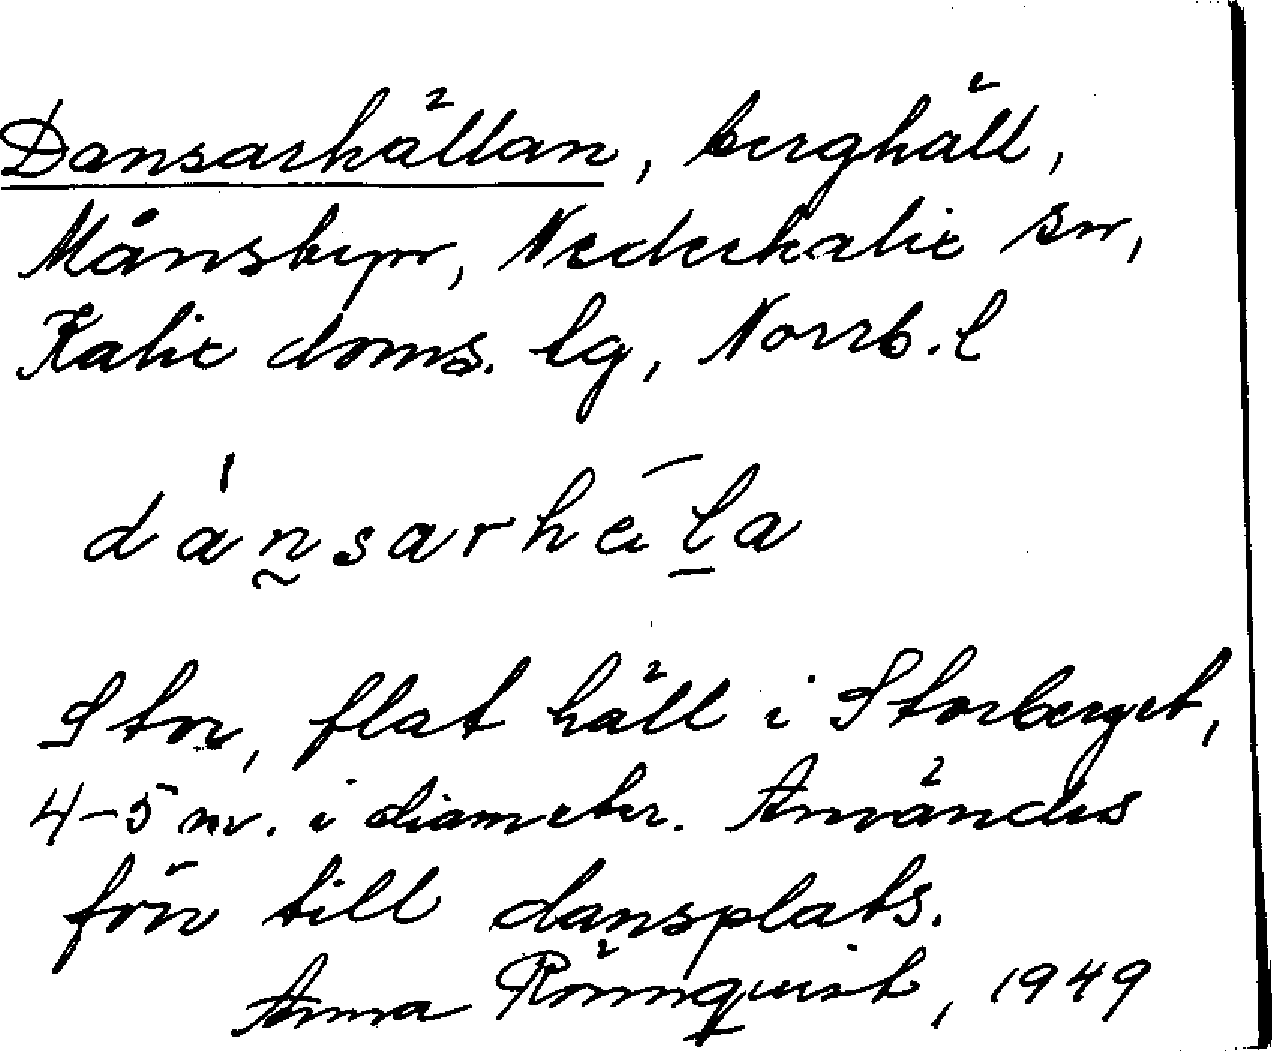 Dansarhällan, berghäll,
Månsbyn, Nederkalix sn,
Kalix doms. lg, Norrb. l
Stor, flat häll i Storberget,
4-5 m. i diameter. Användes
förr till dansplats.
Anna Rönnquist, 1949